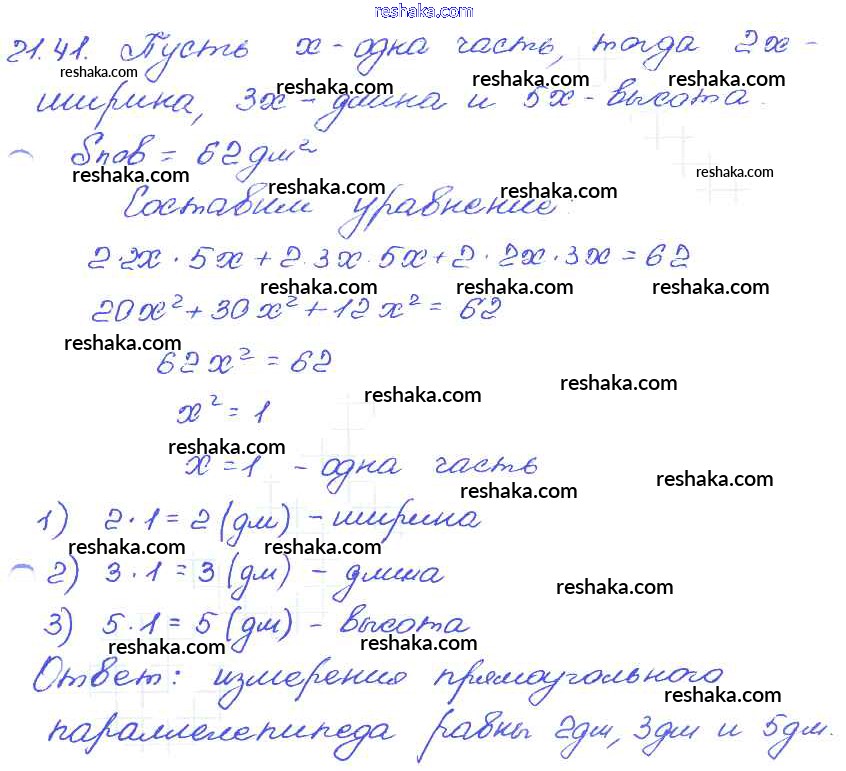 reshaka.com
21.41. Пусть x - одна часть, тогда 2x -
reshaka.com reshaka.com reshaka.com
ширина, 3x - длина и 5x - высота.
Sпов = 62 дм²
reshaka.com reshaka.com reshaka.com reshaka.com
Составим уравнение:
2·2x·5x + 2·3x·5x + 2·2x·3x = 62
reshaka.com reshaka.com reshaka.com
20x² + 30x² + 12x² = 62
reshaka.com
62x² = 62
reshaka.com reshaka.com
x² = 1
reshaka.com
x = 1 - одна часть
reshaka.com reshaka.com
1) 2·1 = 2 (дм) - ширина
reshaka.com reshaka.com
2) 3·1 = 3 (дм) - длина
reshaka.com
3) 5·1 = 5 (дм) - высота
reshaka.com reshaka.com
Ответ: измерения прямоугольного
reshaka.com
параллелепипеда равны 2дм, 3дм и 5дм.